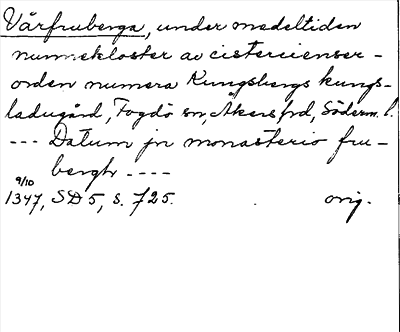 Vårfruberga, under medeltiden
nunnekloster av cistercienser-
orden numera Kungsbergs kungs-
ladugård, Fogdö sn, Åkers hd, Söderm. l.
--- Datum jn monasterio fru-
bergh ----
9/10
1347, SD 5, s. 725. orig.